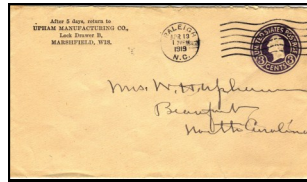 After 5 days, return to
UPHAM MANUFACTURING CO.,
Lock Drawer B,
MARSHFIELD, WIS.
RALEIGH
1919
N.C.
UNITED STATES POSTAGE
3 CENTS 3
Mrs. W. H. Upham
Beaufort
North Carolina